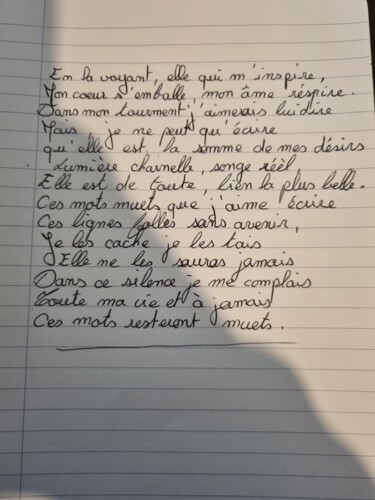 En la voyant, elle qui m'inspire,
Mon coeur s'emballe, mon âme réspire.
Dans mon tourment j'aimerais lui dire
Mais, je ne peut qu'écrire
qu'elle est la somme de mes désirs
Lumière charnelle, songe réél
Elle est de toute, bien la plus belle.
Ces mots muets que j'aime écrire
Ces lignes folles sans avenir,
Je les cache je les tais
Elle ne les sauras jamais
Dans ce silence je me complais
Toute ma vie et à jamais
Ces mots resteront muets.